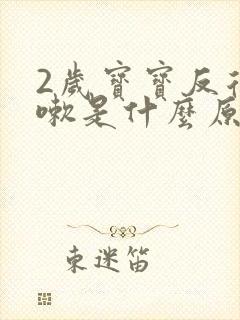 2歲寶寶反
嗽是什麼原
東迷笛